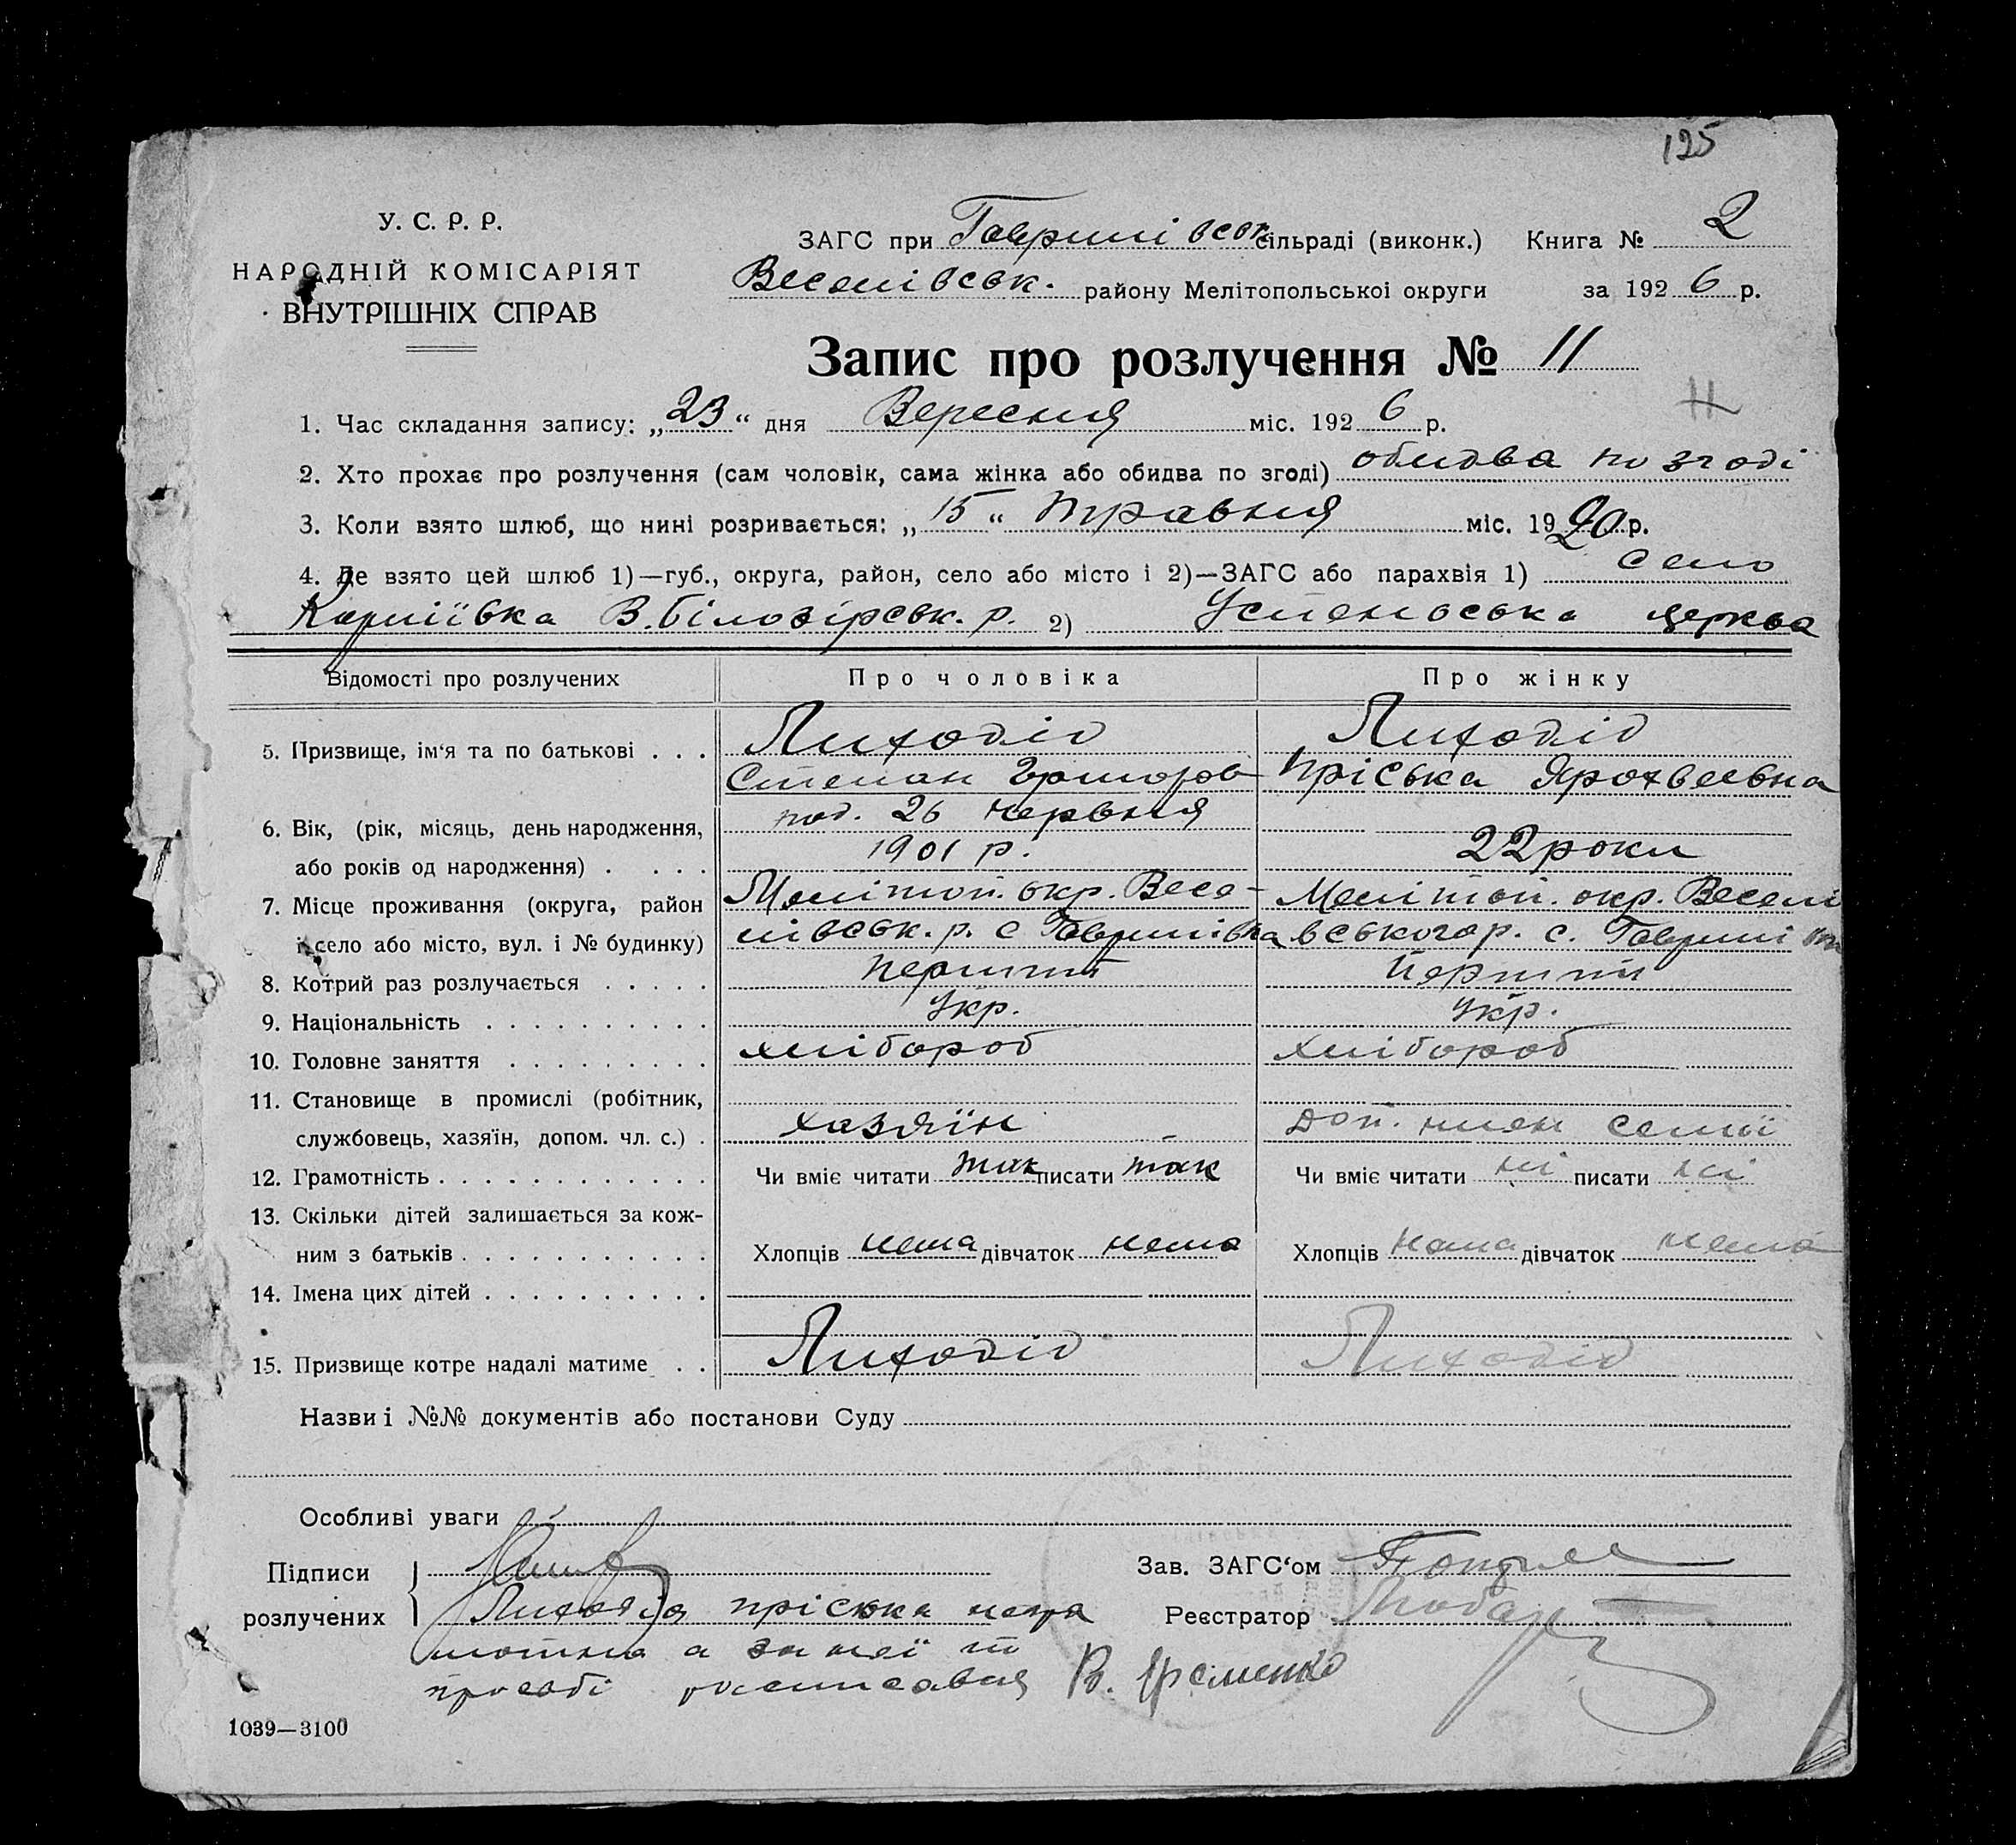 125
У. С. Р. Р.
НАРОДНІЙ КОМІСАРІЯТ
ВНУТРІШНІХ СПРАВ
ЗАГС при Гаврилівськ. сільраді (виконк.) Книга № 2
Веселівськ. району Мелітопольської округи за 1926 р.
Запис про розлучення № 11
11
1. Час складання запису: „23“ дня Вересня міс. 1926 р.
2. Хто прохає про розлучення (сам чоловік, сама жінка або обидва по згоді) обидва по згоді
3. Коли взято шлюб, що нині розривається: „15“ Травня міс. 1920 р.
4. Де взято цей шлюб 1)—губ., округа, район, село або місто і 2)—ЗАГС або парахвія 1) село
В. Білозірськ. р. 2) Успенська церква
Відомості про розлучених Про чоловіка Про жінку
5. Призвище, ім'я та по батькові . . . Лиходід Лиходід
Степан Григоров Пріська
6. Вік, (рік, місяць, день народження, 26 червня
або років од народження) . . . . 1901 р. 22 роки
7. Місце проживання (округа, район Меліттоп. окр. Весе- Мелітоп. окр. Веселі
і село або місто, вул. і № будинку) лівськ. р. с Гаврилівка вського р. с. Гаврилівка
8. Котрий раз розлучається . . . . . Перший Перший
9. Національність . . . . . . . . . . Укр. Укр.
10. Головне заняття . . . . . . . . . хлібороб хлібороб
11. Становище в промислі (робітник,
службовець, хазяїн, допом. чл. с.) . хазяїн доп. член семії
12. Грамотність . . . . . . . . . . . . Чи вміє читати так писати так Чи вміє читати ні писати ні
13. Скільки дітей залишається за кож-
ним з батьків . . . . . . . . . . . Хлопців нема дівчаток нема Хлопців нема дівчаток нема
14. Імена цих дітей . . . . . . . . . .
15. Призвище котре надалі матиме . . Лиходід Лиходід
Назви і №№ документів або постанови Суду
Особливі уваги
Підписи Зав. ЗАГС'ом
розлучених Лиходід Пріська негра Реєстратор
мотна а за неї по
просьбі росписався В. Яременко
1039—3100